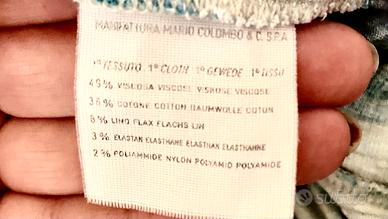 MANIFATTURA MARIO COLOMBO & C. S.P.A
1° TESSUTO 1° CLOTH 1° GEWEDE 1° TISSU
49% VISCOSA VISCOSE VISKOSE VISCOSE
36% COTONE COTTON BAUMWOLLE COTON
8% LINO FLAX FLACHS LIN
3% ELASTAN ELASTHANE ELASTHAN ELASTHANNE
2% POLIAMMIDE NYLON POLYAMID POLYAMIDE
SUBITO